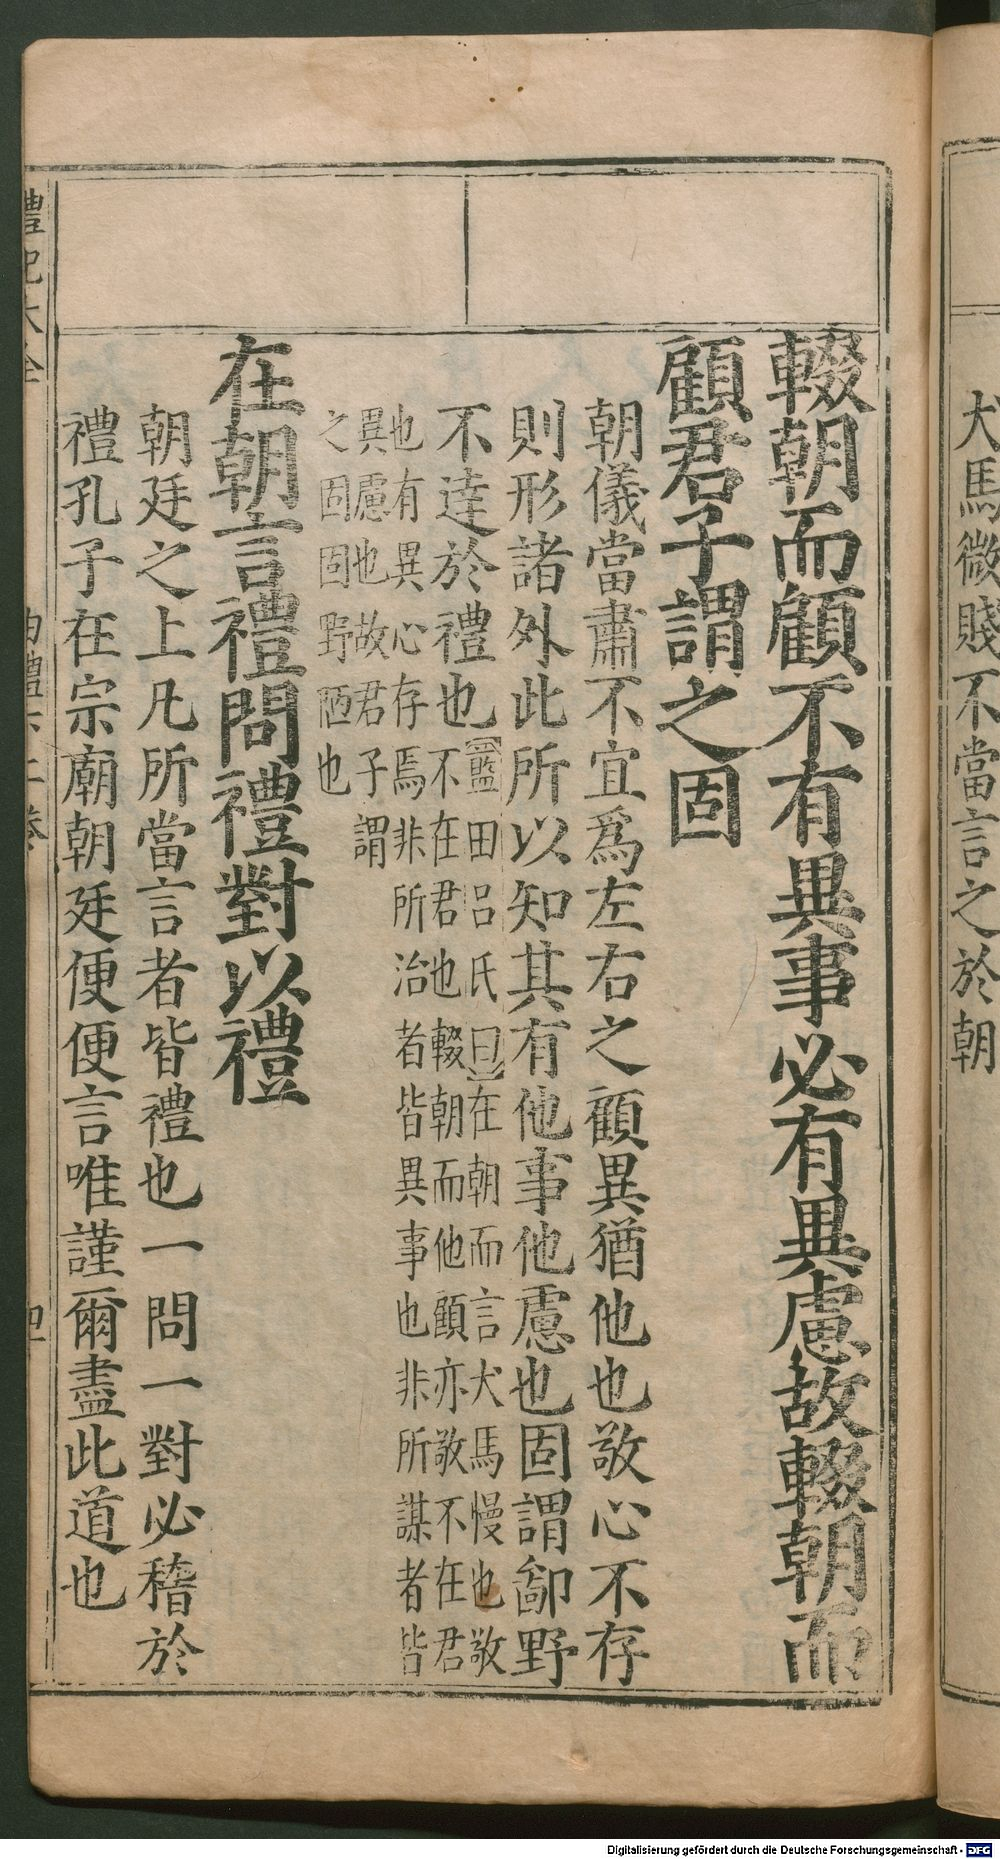 犬馬微賤不當言之於朝
輟朝而顧不有異事必有異慮故輟朝而
顧君子謂之固
朝儀當肅不宜爲左右之顧異猶他也敬心不存
則形諸外此所以知其有他事他慮也固謂鄙野
不達於禮也
【藍田呂氏曰】在朝而言犬馬慢也敬
不在君也輟朝而他顧亦敬不在君
也有異心存焉非所治者皆異事也非所謀者皆
異慮也故君子謂
之固固野陋也
在朝言禮問禮對以禮
朝廷之上凡所當言者皆禮也一問一對必稽於
禮孔子在宗廟朝廷便便言唯謹爾盡此道也
禮記大全
曲禮下二卷
Digitalisierung gefördert durch die Deutsche Forschungsgemeinschaft - DFG